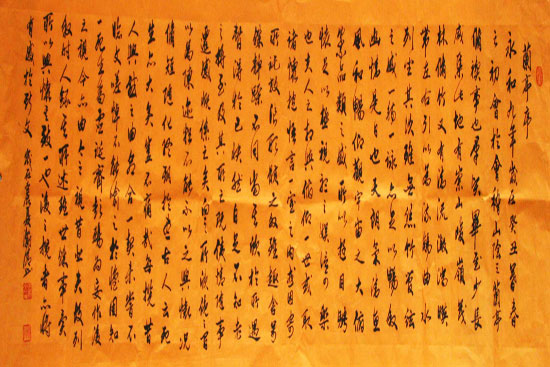 蘭亭序
永和九年歲在癸丑暮春
之初會於會稽山陰之蘭亭
脩禊事也群賢畢至少長
咸集此地有崇山峻嶺茂
林脩竹又有清流激湍映
帶左右引以為流觴曲水
列坐其次雖無絲竹管弦
之盛一觴一詠亦足以暢敘
幽情是日也天朗氣清惠
風和暢仰觀宇宙之大俯
察品類之盛所以遊目騁
懷足以極視聽之娛信可樂
也夫人之相與俯仰一世或取
諸懷抱悟言一室之內或因寄
所託放浪形骸之外雖趣舍萬
殊靜躁不同當其欣於所遇
暫得於己快然自足不知老
之將至及其所之既倦情隨事
遷感慨係之矣向之所欣俛仰之間
以為陳迹猶不能不以之興懷況
脩短隨化終期於盡古人云死
生亦大矣豈不痛哉每攬昔
人興感之由若合一契未嘗不
臨文嗟悼不能喻之於懷固知
一死生為虛誕齊彭殤為妄作後
之視今亦由今之視昔悲夫故列
敘時人錄其所述雖世殊事異
所以興懷其致一也後之攬者亦將
有感於斯文